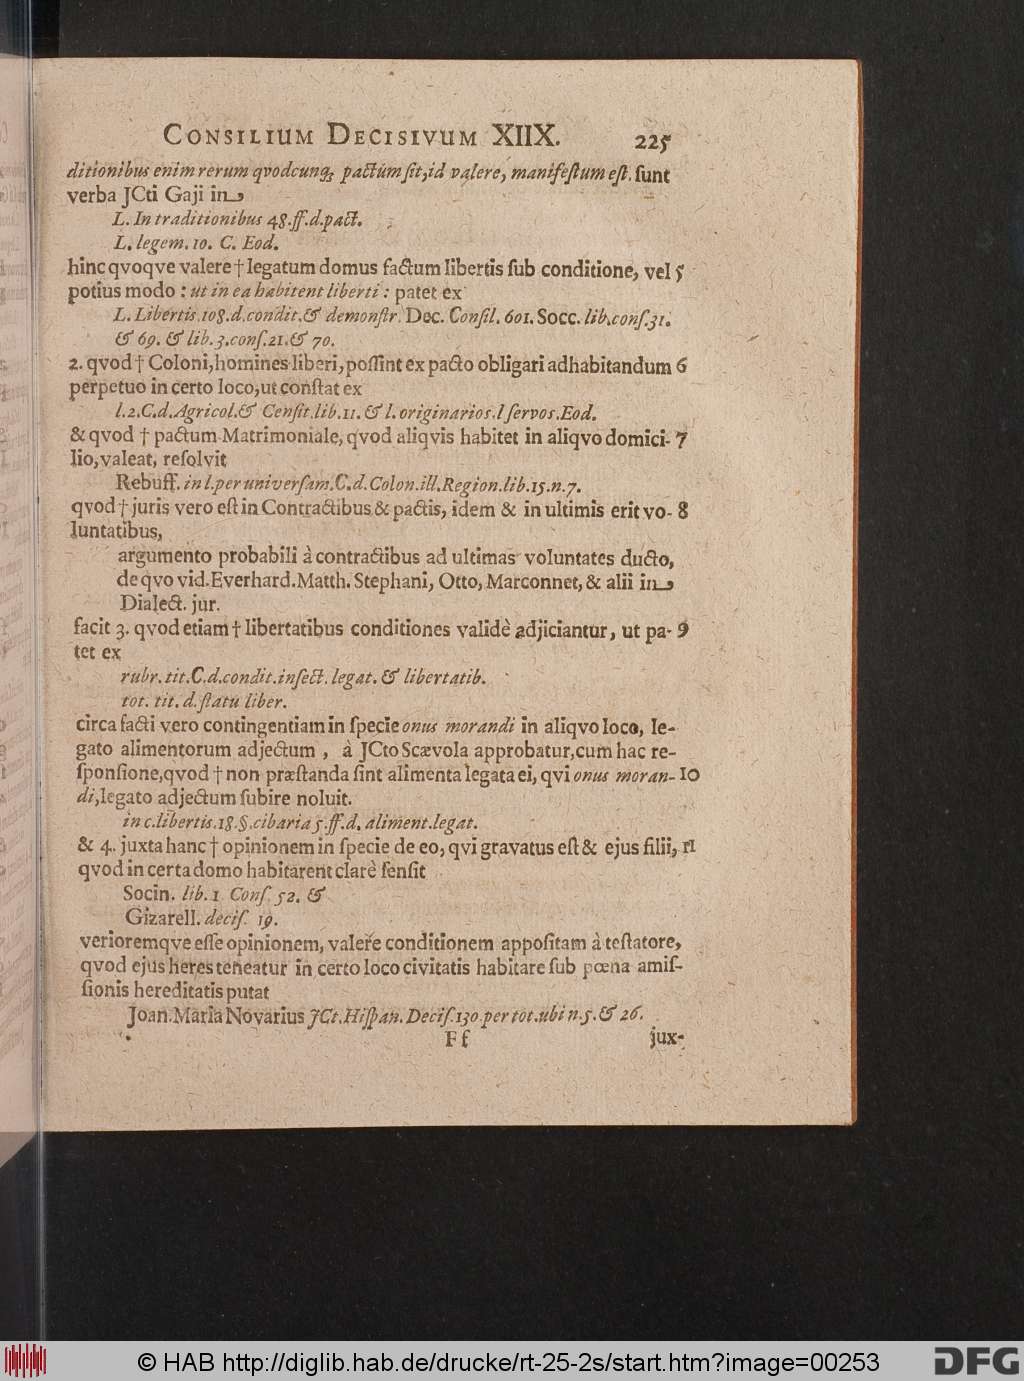 CONSILIUM DECISIVUM XIIX. 225
ditionibus enim rerum qvodcunq; pactum sit, id valere, manifestum est. sunt
verba JCti Gaji in
L. In traditionibus 48. ff. d. pact.
L. legem. 10. C. Eod.
hinc qvoqve valere † legatum domus factum libertis sub conditione, vel 5
potius modo : ut in ea habitent liberti : patet ex
L. Libertis. 108. d. condit. & demonstr. Dec. Consil. 601. Socc. lib. cons. 31.
& 69. & lib. 3. cons. 21. & 70.
2. qvod † Coloni, homines liberi, possint ex pacto obligari ad habitandum 6
perpetuo in certo loco, ut constat ex
l. 2. C. d. Agricol. & Censit. lib. 11. & l. originarios. l servos. Eod.
& qvod † pactum Matrimoniale, qvod aliqvis habitet in aliqvo domici- 7
lio, valeat, resolvit
Rebuff. in l. per universam. C. d. Colon. ill. Region. lib. 15. n. 7.
qvod † juris vero est in Contractibus & pactis, idem & in ultimis erit vo- 8
luntatibus,
argumento probabili à contractibus ad ultimas voluntates ducto,
de qvo vid. Everhard. Matth. Stephani, Otto, Marconnet, & alii in
Dialect. jur.
facit 3. qvod etiam † libertatibus conditiones validè adjiciantur, ut pa- 9
tet ex
rubr. tit. C. d. condit. insect. legat. & libertatib.
tot. tit. d. statu liber.
circa facti vero contingentiam in specie onus morandi in aliqvo loco, le-
gato alimentorum adjectum , à JCto Scævola approbatur, cum hac re-
sponsione, qvod † non præstanda sint alimenta legata ei, qvi onus moran- 10
di, legato adjectum subire noluit.
in c. libertis. 18. §. cibaria 5. ff. d. aliment. legat.
& 4. juxta hanc † opinionem in specie de eo, qvi gravatus est & ejus filii, 11
qvod in certa domo habitarent clarè sensit
Socin. lib. 1 Cons. 52. &
Gizarell. decis. 19.
verioremqve esse opinionem, valere conditionem appositam à testatore,
qvod ejus heres teneatur in certo loco civitatis habitare sub pœna amis-
sionis hereditatis putat
Joan. Maria Novarius JCt. Hispan. Decis. 130 per tot. ubi n. 5. & 26.
F f jux-
© HAB http://diglib.hab.de/drucke/rt-25-2s/start.htm?image=00253 DFG